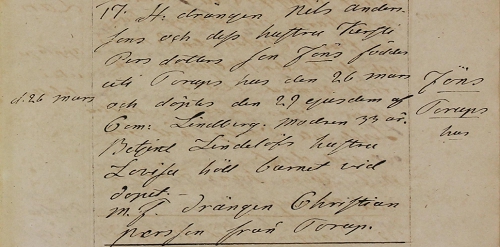 17. H. drängen Nils Anders-
sons och dess hustru Kersti
Pers dotters son Jöns föddes
uti Torups hus den 26 mars
d. 26 mars
och döptes den 29 ejusdem af
Com: Lindberg. Modren 33 år.
Betjent Lindelöfs hustru
Lovisa höll barnet vid
dopet.
m. f. drängen Christian
Persson från Torup.
Jöns
Torups
hus